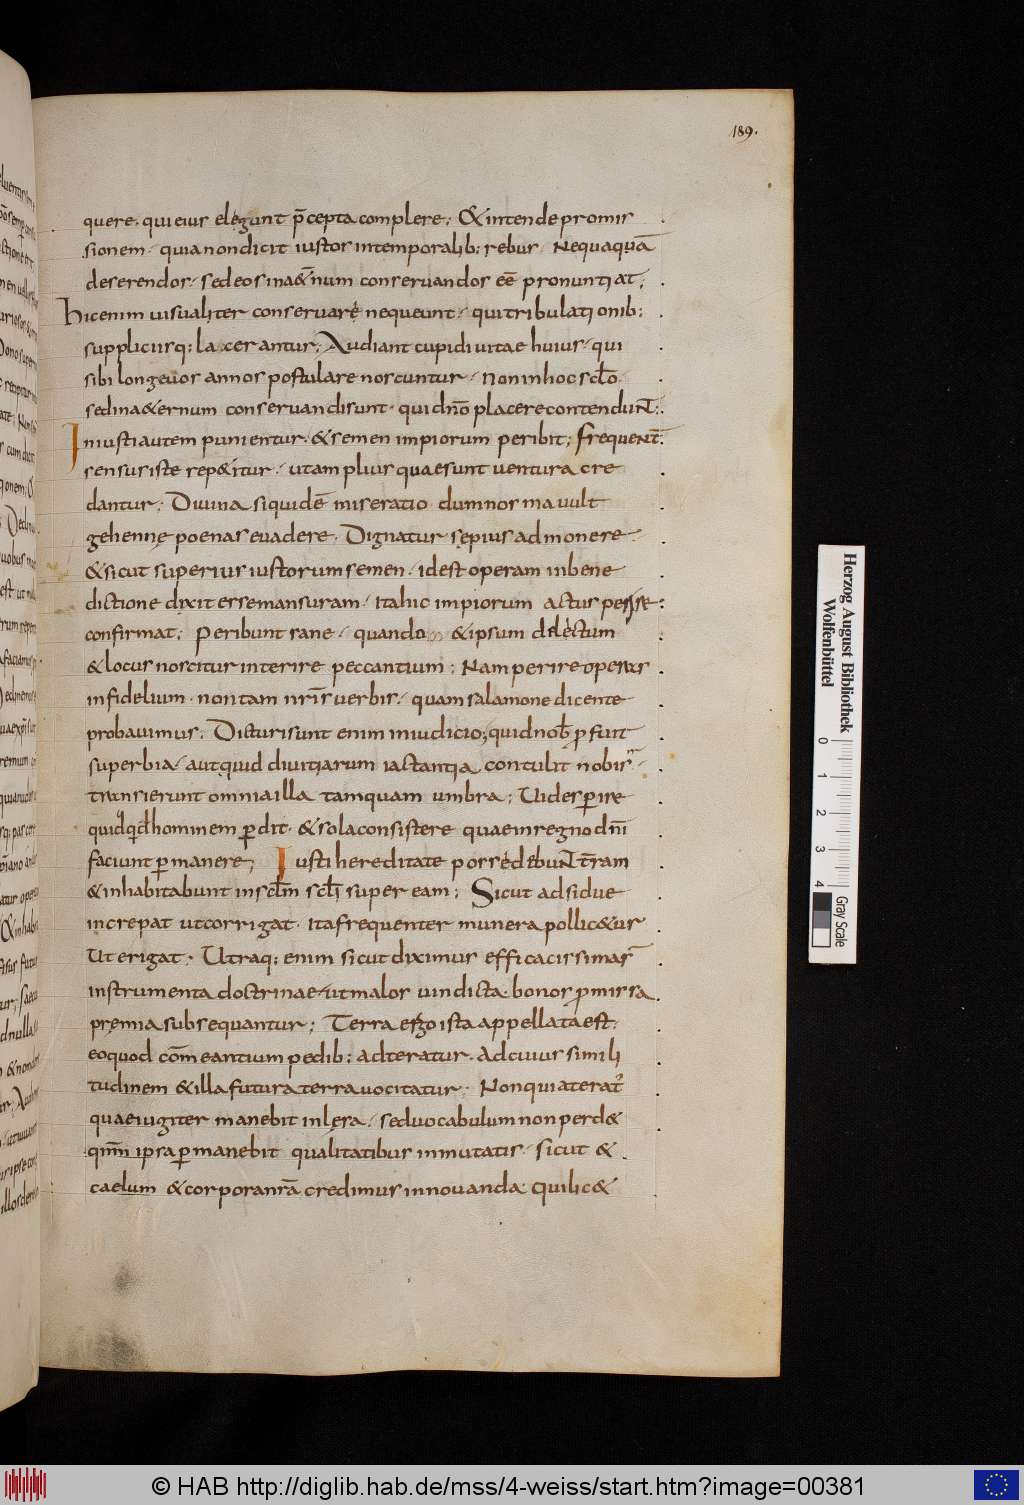 189.
quere. qui eius elegunt p̄cepta complere; & intende promis
sionem. quia non dicit iustos in temporalib; rebus. Nequaquā
deserendos. sed eos in a&̄num conseruandos eē pronuntiat;
Hic enim uisualiter conseruare nequeunt. qui tribulationib;
suppliciisq; lacerantur; Audiant cupidi uitae huius. qui
sibi longeuos annos postulare noscuntur. Non in hoc sclo
sed in a&ernum conseruandi sunt. qui dn̄o placere contendunt;
Iniusti autem punientur. & semen impiorum peribit; Frequent̄
sensus iste rep&itur. ut amplius quae sunt uentura cre
dantur; Diuina siquidē miseratio dum nos mauult
gehennę poenas euadere. Dignatur sępius admonere.
& sicut superius iustorum semen. id est operam in bene
dictione dixit esse mansuram. Ita hic impiorum actus perisse
confirmat; Peribunt sane. quando & ipsum delectum
& locus noscitur interire peccantium; Nam perire operas
infidelium. non tam nr̄is uerbis. quam salamone dicente
probauimus; Dicturi sunt enim in iudicio; quid nob̄ ꝓfuit
superbia. aut quid diuitiarum iactantia contulit nobis.
transierunt omnia illa tamquam umbra; Uides ꝑire
quidquid hominem ꝑdit. & sola consistere quae in regno dn̄i
faciunt ꝑmanere; Iusti hereditate possedebunt t̄ram
& inhabitabunt in sclm̄ scli super eam; Sicut adsidue
increpat ut corrigat. Ita frequenter munera pollic&ur
Ut erigat. Utraq; enim sicut diximus efficacissimas
instrumenta doctrinae. ut malos uindicta. bonos ꝓmissa
pręmia subsequantur; Terra ergo ista appellata est.
eo quod com̄eantium pedib; adteratur. Ad cuius simili
tudinem & illa futura terra uocitatur. Non quia teratur
quae iugiter manebit inlęsa. sed uocabulum non perd&
qm̄ ipsa ꝑmanebit qualitatibus inmutatis. sicut &
caelum & corpora nr̄a credimus innouanda. Qui lic&
Herzog August Bibliothek
Wolfenbüttel
0 1 2 3 4
Gray Scale
© HAB http://diglib.hab.de/mss/4-weiss/start.htm?image=00381